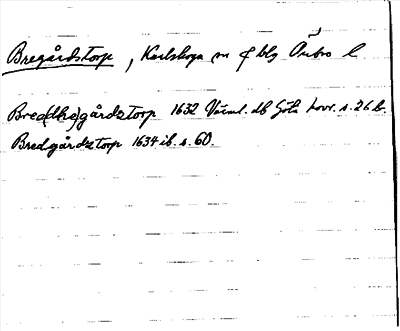 Bregårdstorp, Karlskoga sn f blg Örebro l
Bre(dhe)gårdztorp 1632 Värml. db Göta hovr. s. 26 b.
Bredgårdztorp 1634 ib. s. 60.